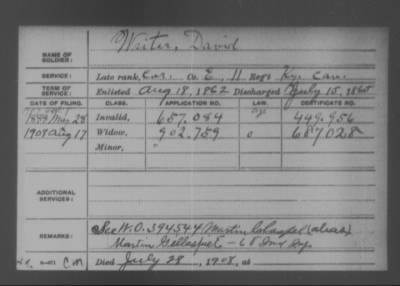 Writer, David
NAME OF SOLDIER:
SERVICE: Late rank, Co. E, 11 Reg't Ky. Cav.
TERM OF SERVICE: Enlisted Aug 18, 1862 Discharged July 15, 1865
DATE OF FILING. CLASS. APPLICATION NO. LAW. CERTIFICATE NO.
1889 28 Invalid, 657.084 449.956
1908 Aug 17 Widow, 902.759 687028
Minor,
ADDITIONAL SERVICES:
REMARKS: See W.O. 394544 Martin (alias)
Martin
Died July 28, 1908, at